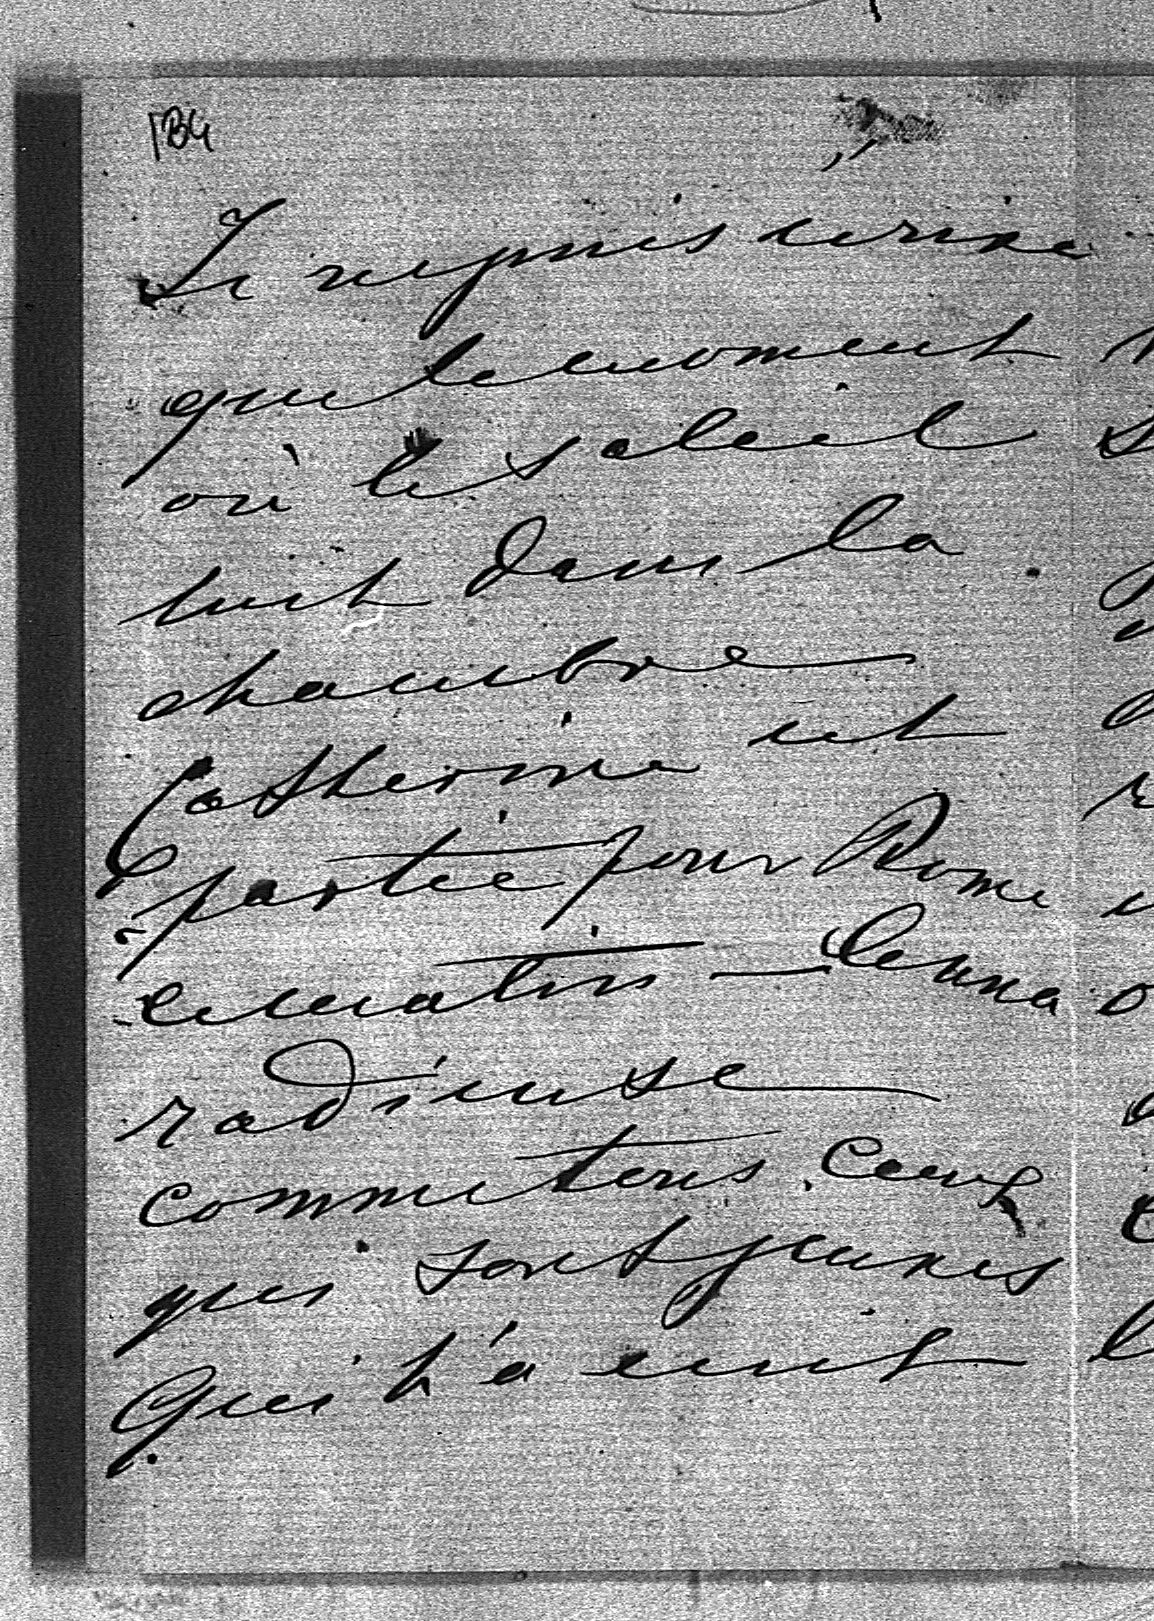 184
Je ne puis écrire
que le moment
où le soleil
luit dans la
chambre
Catherine est
partie pour Rome
ce matin — Lenna
radieuse
comme tous ceux
qui sont jeunes
Qui t'a écrit